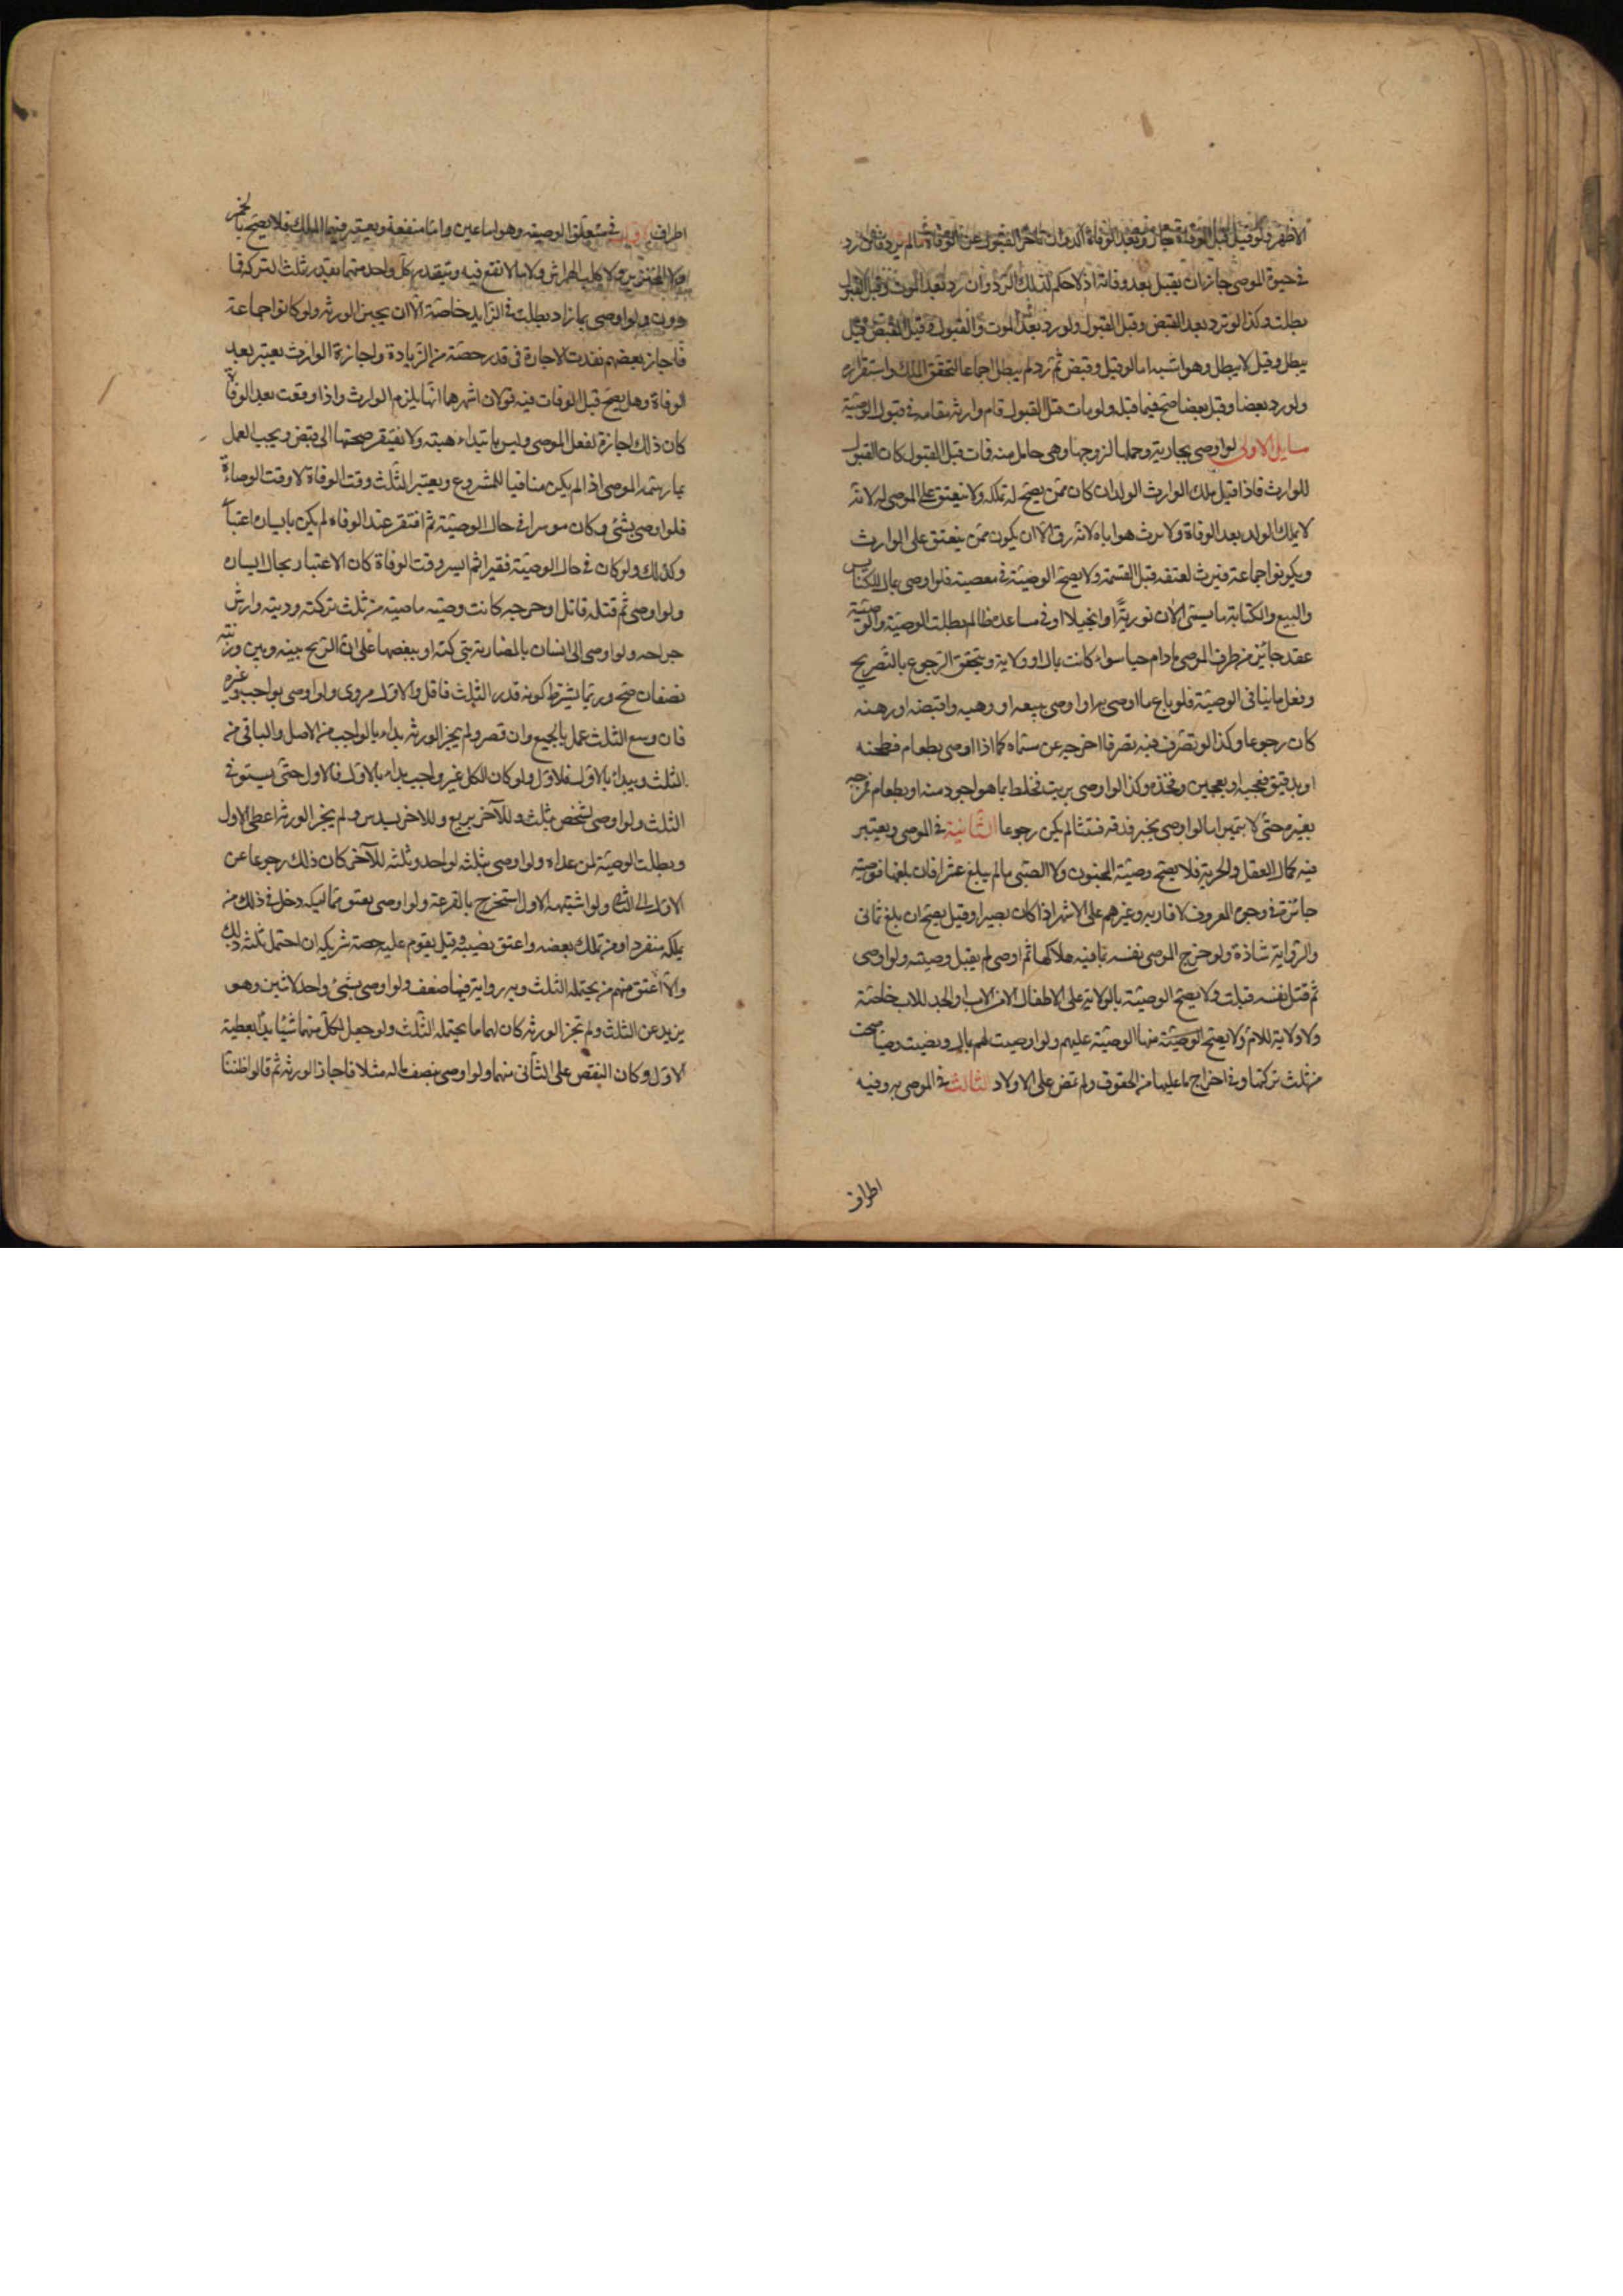 الاظهر فلو قبل قبل الوفاة جاز وبعد الوفاة آكد وان تاخر القبول عن الوفاة مالم يرد فان رد
في حيوة الموصي جاز ان يقبل بعد وفاته اذ لا حكم لذلك الرد وان رد بعد الموت وقبل القبول
بطلت وكذا لو رد بعد القبض وقبل القبول ولو رد بعد الموت والقبول وقبل القبض قيل
يبطل وقيل لا يبطل وهو اشبه اما لو قبل وقبض ثم رد لم يبطل اجماعا لتحقق الملك واستقراره
ولو رد بعضا وقبل بعضا صح فيما قبله ولو مات قبل القبول قام وارثه مقامه في قبول الوصية
مسايل الاولى لو اوصى بجارية وحملها لزوجها وهي حامل منه فمات قبل القبول كان القبول
للوارث فاذا قبل ملك الوارث الولد ان كان ممن يصح له تملكه ولا ينعتق على الموصى له لانه
لا يملك الولد بعد الوفاة ولا يرث هو اباه لانه رق الا ان يكون ممن ينعتق على الوارث
ويكونوا جماعة فيرث لعتقه قبل القسمة ولا يصح الوصية في معصية فلو اوصى بمال للكنايس
والبيع والكتابة ما يسمى الان تورية او انجيلا او في مساعدة ظالم بطلت الوصية والوصية
عقد جائز من طرف الموصي مادام حيا سواء كانت بمال او ولاية ويتحقق الرجوع بالتصريح
وفعل ما ينافي الوصية فلو باع ما اوصى به او اوصى ببيعه او وهبه واقبضه او رهنه
كان رجوعا وكذا لو تصرف فيه تصرفا اخرجه عن مسماه كما اذا اوصى بطعام فطحنه
او بدقيق فعجنه او بعجين وخبزه وكذا لو اوصى بزيت فخلطه بما هو اجود منه او بطعام فمزجه
بغيره حتى لا يتميز اما لو اوصى بخبز فدقه فتيتا لم يكن رجوعا الثانية في الموصي ويعتبر
فيه كمال العقل والحرية فلا يصح وصية المجنون ولا الصبي مالم يبلغ عشرا فان بلغها فوصيته
جائزة في وجوه المعروف لاقاربه وغيرهم على الاشهر اذا كان بصيرا وقيل يصح ان بلغ ثماني
والرواية شاذة ولو جرح الموصي نفسه بما فيه هلاكها ثم اوصى لم يقبل وصيته ولو اوصى
ثم قتل نفسه قبلت ولا يصح الوصية بالولاية على الاطفال الا من الاب او الجد للاب خاصة
ولا ولاية للام ولا يصح الوصية منها الوصية عليهم ولو اوصت لهم بمال ونصبت وصيا صحت
من ثلث تركتها وفي اخراج ما عليها من الحقوق ولم تمض على الاولاد الثالث في الموصى به وفيه
اطراف
اطراف الاول في متعلق الوصية وهو اما عين واما منفعة ويعتبر فيهما الملك فلا يصح بالخمر
ولا الخنزير ولا كلب الهراش ولا ما لا نفع فيه ويتقدر كل واحد منهما بقدر ثلث التركة فما
دون ولو اوصى بما زاد بطلت في الزايد خاصة الا ان يجيز الورثة ولو كانوا جماعة
فاجاز بعضهم نفذت الاجازة في قدر حصته من الزيادة واجازة الوارث يعتبر بعد
الوفاة وهل يصح قبل الوفات فيه قولان اشهرهما انها يلزم الوارث واذا وقعت بعد الوفاة
كان ذلك اجازة لفعل الموصي وليس بابتداء هبة ولا تفتقر صحتها الى قبض ويجب العمل
بما رسمه الموصي اذا لم يكن منافيا للمشروع ويعتبر الثلث وقت الوفاة لا وقت الوصاة
فلو اوصى بشئ وكان موسرا في حال الوصية ثم افتقر عند الوفاه لم يكن بايساره اعتبار
وكذلك ولو كان في حال الوصية فقيرا ثم ايسر وقت الوفاة كان الاعتبار بحال ايساره
ولو اوصى ثم قتله قاتل او جرحه كانت وصيته ماضية من ثلث تركته وديته وارش
جراحه ولو اوصى الى انسان بالمضاربة بتركته او ببعضها على ان الربح بينه وبين ورثته
نصفان صح وربما يشترط كونه قدر الثلث فاقل والاول مروى ولو اوصى بواجب وغيره
فان وسع الثلث عمل بالجميع وان قصر ولم يجز الورثة بداء بالواجب من الاصل والباقي من
الثلث ويبداء بالاول فالاول ولو كان الكل غير واجب بداء بالاول فالاول حتى يستوفي
الثلث ولو اوصى لشخص بثلث وللآخر بربع وللاخر بسدس ولم يجز الورثة اعطى الاول
وبطلت الوصية لمن عداه ولو اوصى بثلثه لواحد وبثلثه للآخر كان ذلك رجوعا عن
الاول الى الثاني ولو اشتبه الاول استخرج بالقرعة ولو اوصى بعتق مماليكه دخل في ذلك من
يملكه منفردا ومن يملك بعضه واعتق نصيبه وقيل يقوم عليه حصة شريكه ان احتمل ثلثه ذلك
والا اعتق منهم من يحتمله الثلث وبه رواية فيها ضعف ولو اوصى بشئ واحد لاثنين وهو
يزيد عن الثلث ولم تجز الورثة كان لهما ما يحتمله الثلث ولو جعل لكل منهما شيئا بدأ بعطية
الاول وكان النقص على الثاني منهما ولو اوصى بنصف ماله مثلا فاجاز الورثة ثم قالوا ظننا